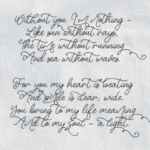 Without you I'm nothing -
Like sun without rays,
the without running
And sea without waves.
For you my heart is beating
And is clear, wide.
You bring to my life meaning
And to my soul - a light.